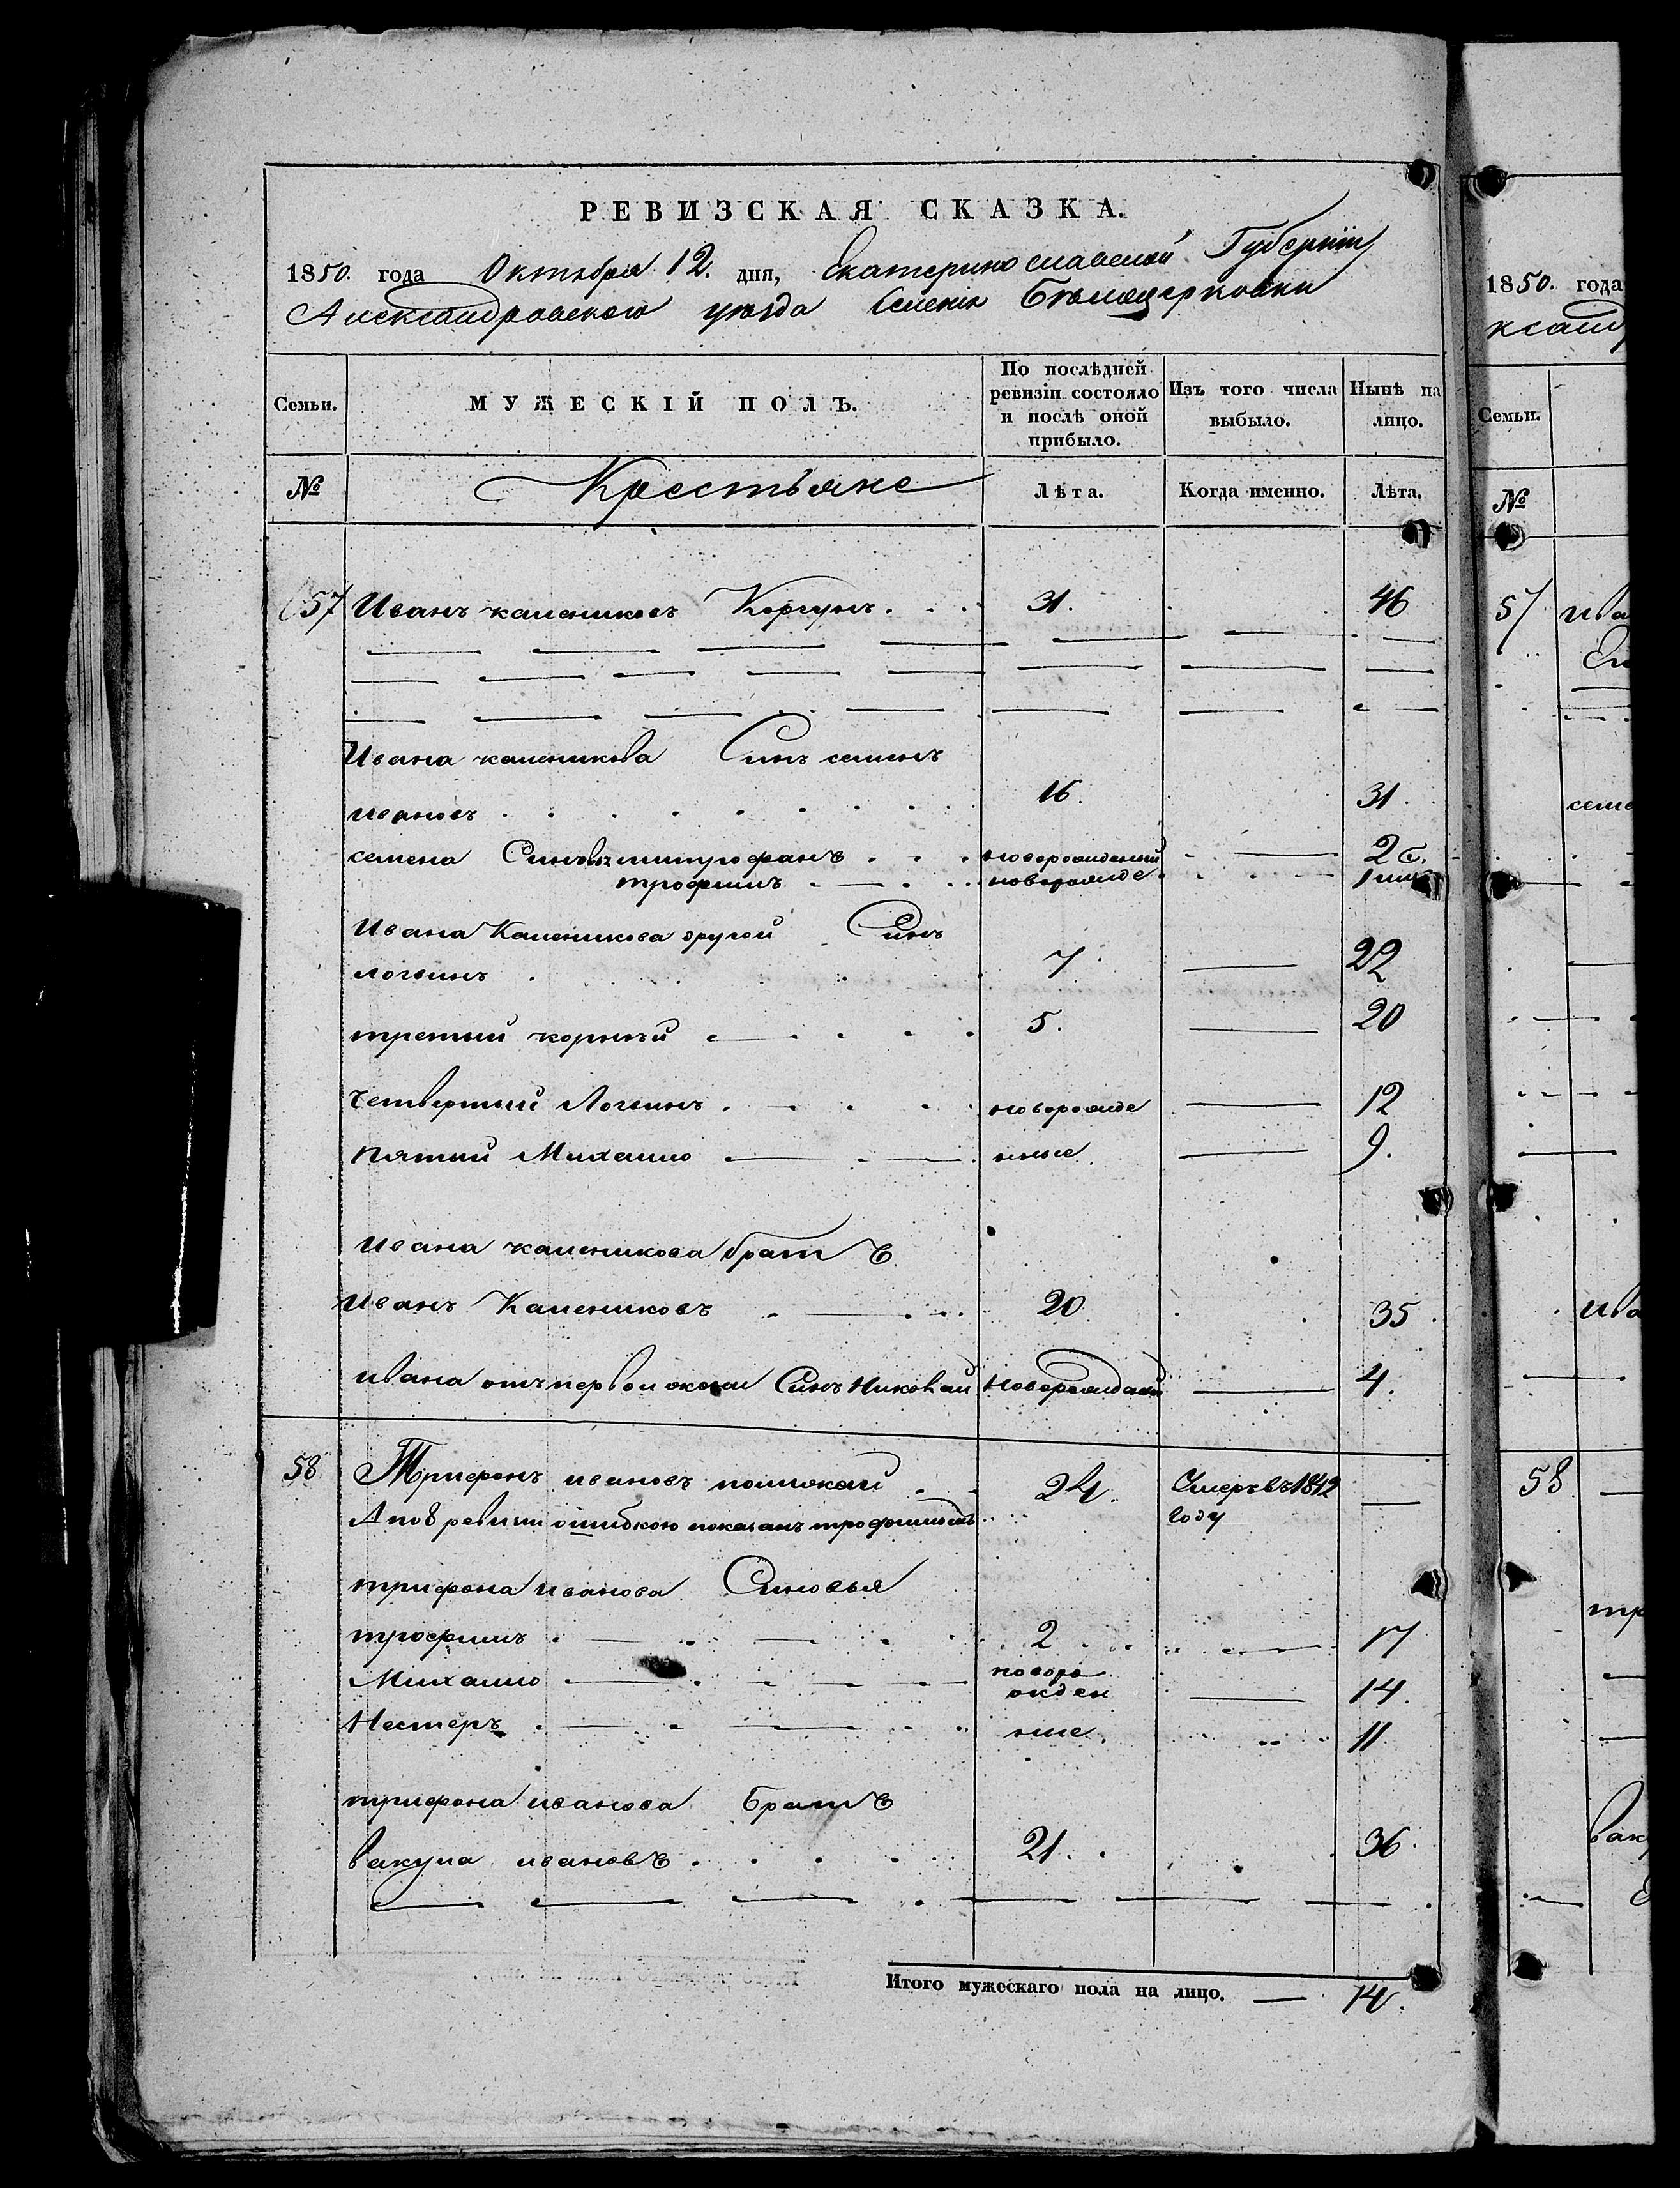 РЕВИЗСКАЯ СКАЗКА.
1850. года Октября 12. дня, Екатеринославской Губернии
Александровского уезда Селения Белоцерковки
Семьи. МУЖЕСКІЙ ПОЛЪ. По послѣдней ревизіи состояло и послѣ оной прибыло. Изъ того числа выбыло. Нынѣ на лицо.
№ Крестьяне Лѣта. Когда именно. Лѣта.
57 Иванъ калениковъ 31. 46
Ивана каленикова Синъ семенъ
ивановъ 16. 31.
семена митрофанъ новорожденный 2
трофимъ новорожде 1
Ивана Каленикова другой Синъ
логвинъ 7 22
третий корнѣй 5. 20
четвертый Логвинъ новорожде 12
пятый Михайло нные 9.
ивана каленикова братъ
иванъ Калениковъ 20 35
ивана отъ первой жены Синъ Николай Новорожданый 4.
58 Трифонъ ивановъ 24. Умеръ въ 1842
А по 8 ревизии ошибкою показанъ году
трифона иванова Синовья
трофимъ 2 17
Михайло новоро
жден 14.
Нестеръ ные 11
трифона иванова Братъ
вакула ивановъ 21. 36
Итого мужескаго пола на лицо. 14.
1850. года
ксанд
Семьи.
№
57 ива
семе
ива
58
тр
вак